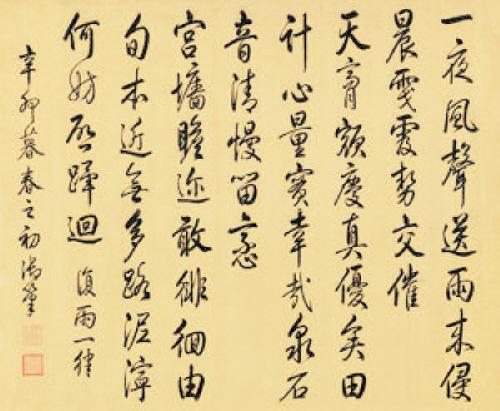 一夜風聲送雨來侵
晨勢交催
天膏額慶真優矣田
計心量實幸哉泉石
音清慢留意
宮墻瞻迩敢徘徊由
旬本近無多路泥濘
何妨啟蹕迴 復雨一律
辛卯暮春之初御筆